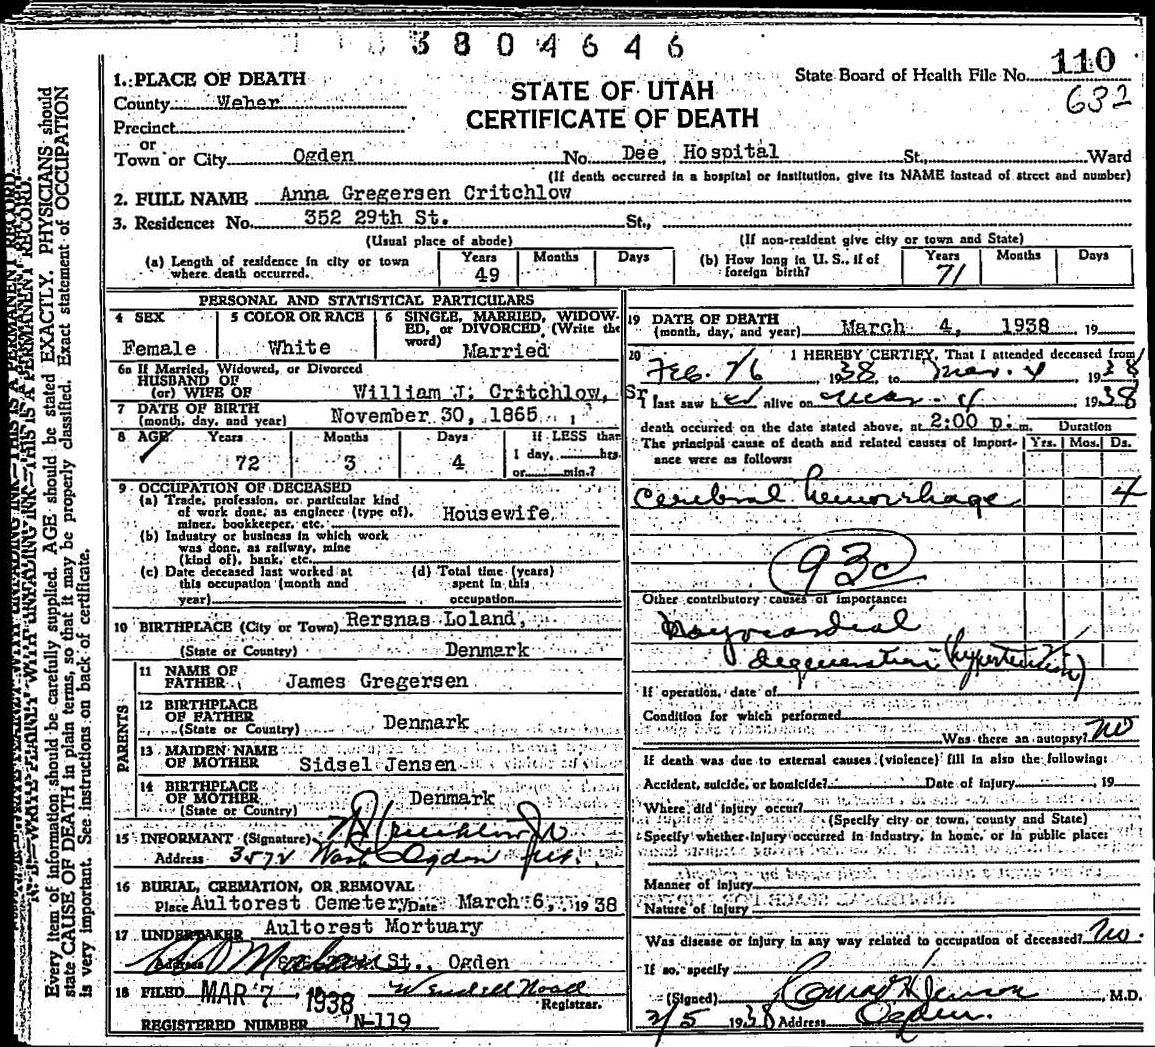 3804646
110
State Board of Health File No.
632
STATE OF UTAH
CERTIFICATE OF DEATH
1. PLACE OF DEATH
County Weber
Precinct
or
Town or City Ogden No. Dee Hospital St., Ward
(If death occurred in a hospital or institution, give its NAME instead of street and number)
2. FULL NAME Anna Gregersen Critchlow
3. Residence: No. 352 29th St. St.,
(Usual place of abode) (If non-resident give city or town and State)
(a) Length of residence in city or town where death occurred. Years 49 Months Days
(b) How long in U. S., if of foreign birth? Years 71 Months Days
PERSONAL AND STATISTICAL PARTICULARS
4 SEX Female
5 COLOR OR RACE White
6 SINGLE, MARRIED, WIDOWED, or DIVORCED, (Write the word) Married
6a If Married, Widowed, or Divorced
HUSBAND OF
(or) WIFE OF William J. Critchlow, Sr
7 DATE OF BIRTH
(month, day, and year) November 30, 1865
8 AGE Years 72 Months 3 Days 4 If LESS than 1 day, hrs. or min.?
9 OCCUPATION OF DECEASED
(a) Trade, profession, or particular kind
of work done, as engineer (type of), Housewife
miner, bookkeeper, etc.
(b) Industry or business in which work
was done, as railway, mine
(kind of), bank, etc.
(c) Date deceased last worked at
this occupation (month and
year)
(d) Total time (years)
spent in this
occupation
10 BIRTHPLACE (City or Town) Rersnas Loland,
(State or Country) Denmark
PARENTS
11 NAME OF
FATHER James Gregersen
12 BIRTHPLACE
OF FATHER Denmark
(State or Country)
13 MAIDEN NAME
OF MOTHER Sidsel Jensen
14 BIRTHPLACE
OF MOTHER Denmark
(State or Country)
15 INFORMANT (Signature)
Address 3572 Ogden
16 BURIAL, CREMATION, OR REMOVAL
Place Aultorest Cemetery Date March 6, 1938
17 UNDERTAKER Aultorest Mortuary
Address St., Ogden
18 FILED MAR 7 1938 Wendell Noall
Registrar.
REGISTERED NUMBER N-119
19 DATE OF DEATH
(month, day, and year) March 4, 1938 19
20 I HEREBY CERTIFY, That I attended deceased from
Feb. 26 1938 to Mar. 4 1938
I last saw her alive on Mar. 4 1938
death occurred on the date stated above, at 2:00 p. m. Duration
The principal cause of death and related causes of importance were as follows: Yrs. Mos. Ds.
Cerebral hemorrhage 4
93c
Other contributory causes of importance:
Myocardial
degeneration (hypertension)
If operation, date of
Condition for which performed
Was there an autopsy? No
If death was due to external causes (violence) fill in also the following:
Accident, suicide, or homicide? Date of injury 19
Where did injury occur?
(Specify city or town, county and State)
Specify whether injury occurred in industry, in home, or in public place:
Manner of injury
Nature of injury
Was disease or injury in any way related to occupation of deceased? No.
If so, specify
(Signed) Conrad H Jenson M.D.
3/5 1938 Address Ogden.
Every item of information should be carefully supplied. AGE should be stated EXACTLY. PHYSICIANS should
state CAUSE OF DEATH in plain terms, so that it may be properly classified. Exact statement of OCCUPATION
is very important. See instructions on back of certificate.
N. B.—WRITE PLAINLY WITH UNFADING INK—THIS IS A PERMANENT RECORD.